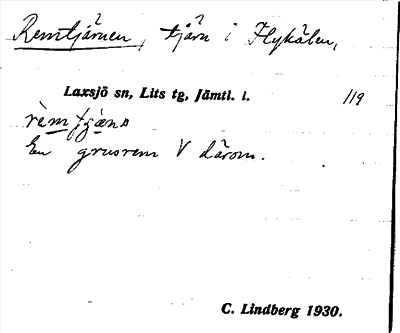 Remtjärnen, tjärn i Flykälen,
Laxsjö sn, Lits tg, Jämtl. l. 119
En grusrem V därom.
C. Lindberg 1930.